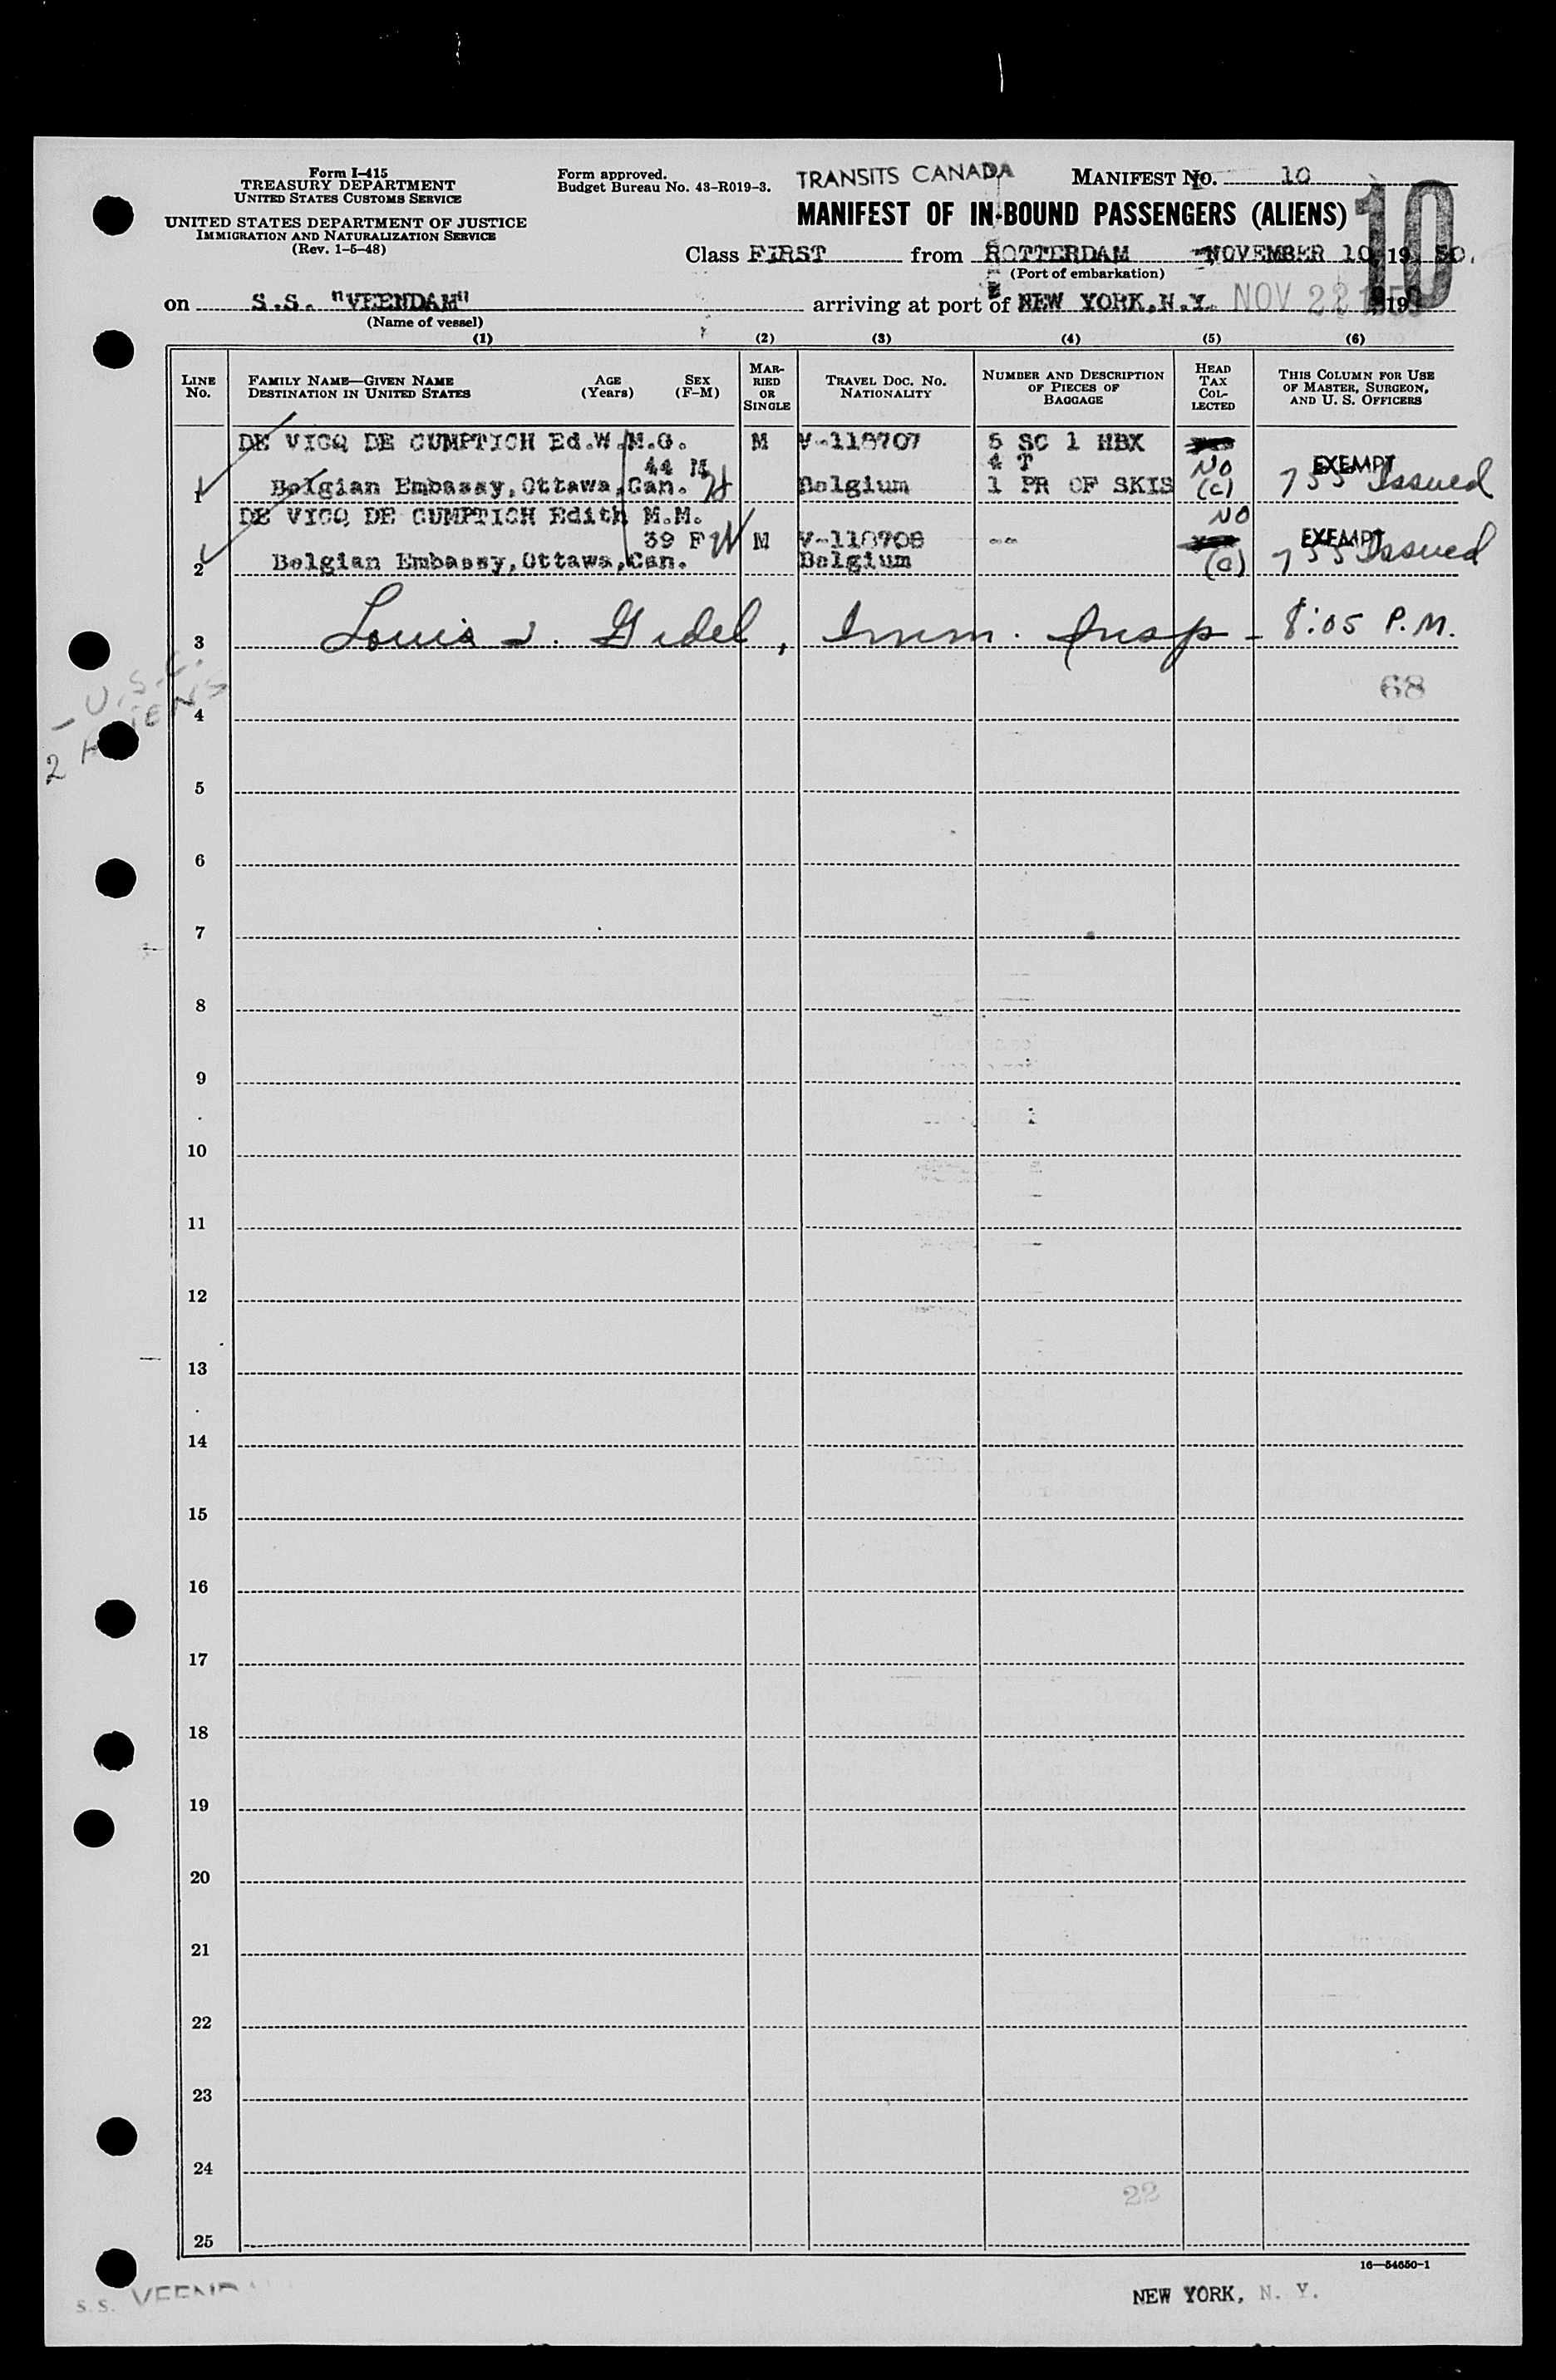 Form I-415
TREASURY DEPARTMENT
UNITED STATES CUSTOMS SERVICE
UNITED STATES DEPARTMENT OF JUSTICE
IMMIGRATION AND NATURALIZATION SERVICE
(Rev. 1-5-48)
Form approved.
Budget Bureau No. 43-R019-3.
TRANSITS CANADA
MANIFEST NO. 10
10
MANIFEST OF IN-BOUND PASSENGERS (ALIENS)
Class FIRST from ROTTERDAM NOVEMBER 10, 19 50.
(Port of embarkation)
on S.S. "VEENDAM" arriving at port of NEW YORK, N.Y. NOV 22 19
(Name of vessel)
(1) (2) (3) (4) (5) (6)
LINE NO. FAMILY NAME—GIVEN NAME DESTINATION IN UNITED STATES AGE (Years) SEX (F-M) MARRIED OR SINGLE TRAVEL DOC. NO. NATIONALITY NUMBER AND DESCRIPTION OF PIECES OF BAGGAGE HEAD TAX COLLECTED THIS COLUMN FOR USE OF MASTER, SURGEON, AND U. S. OFFICERS
DE VICQ DE CUMPTICH Ed.W.M.G. M V-118707 5 SC 1 HBX
44 M 4 T NO EXEMPT
1 Belgian Embassy, Ottawa, Can. Belgium 1 PR OF SKIS (C) 755 Issued
DE VICQ DE CUMPTICH Edith M.M. NO
39 F M V-118708 -- EXEMPT
2 Belgian Embassy, Ottawa, Can. Belgium (C) 755 Issued
3 Louis J. Gidel, Imm. Insp - 8:05 P.M.
68
- U.S.C.
2 ALIENS
4
5
6
7
8
9
10
11
12
13
14
15
16
17
18
19
20
21
22
23
24
22
25
16—54650-1
S.S. VEENDAM
NEW YORK, N. Y.